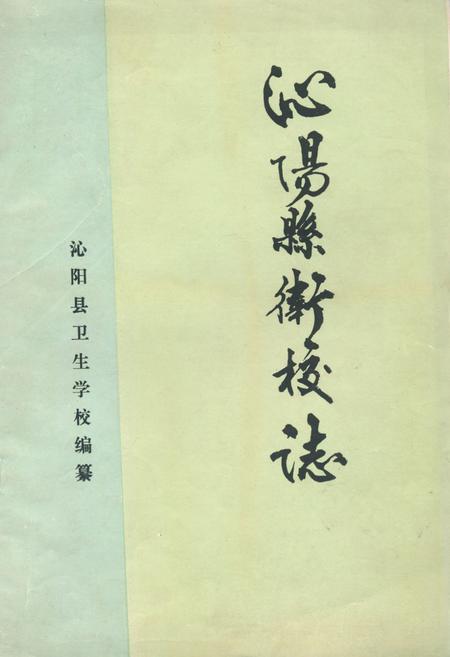 沁陽縣衛校誌
沁阳县卫生学校编纂